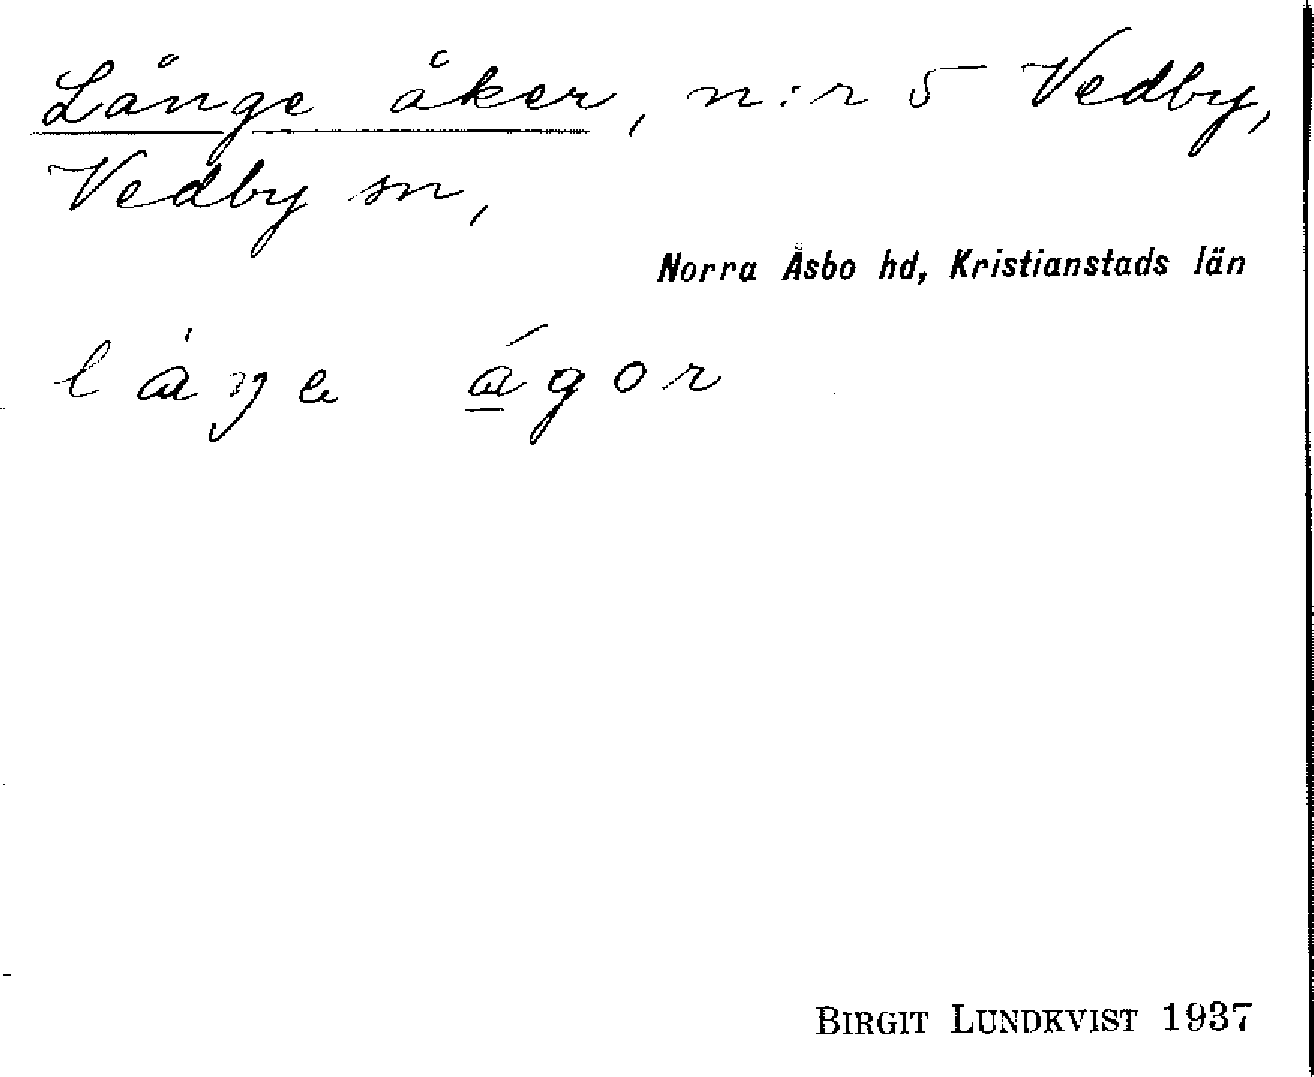 Långe åker, n:r 5 Vedby,
Vedby sn,
Norra Åsbo hd, Kristianstads län
låŋe ágor
BIRGIT LUNDKVIST 1937